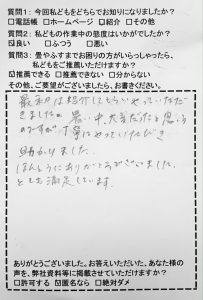 質問１：今回私どもをどちらでお知りになりましたか？
□電話帳　□ホームページ　□紹介　□その他
質問２：私どもの作業中の態度はいかがでしたか？
☑良い　□ふつう　□悪い
質問３：畳やふすまでお困りの方がいらっしゃったら、
私どもをご推薦いただけますか？
☑推薦できる　□推薦できない　□分からない
その他、ご要望がございましたら、お書きください。
最初は紹介してもらいやっていただ
きましたが、暑い中、大変だったと思う
のですが、丁寧にやっていただき
助かりました。
ほんとうにありがとうございました。
とても満足しています。
ありがとうございました。お答えいただいた、あなた様の
声を、弊社資料等に掲載させていただけますか？
□許可する　☑匿名なら　□絶対ダメ